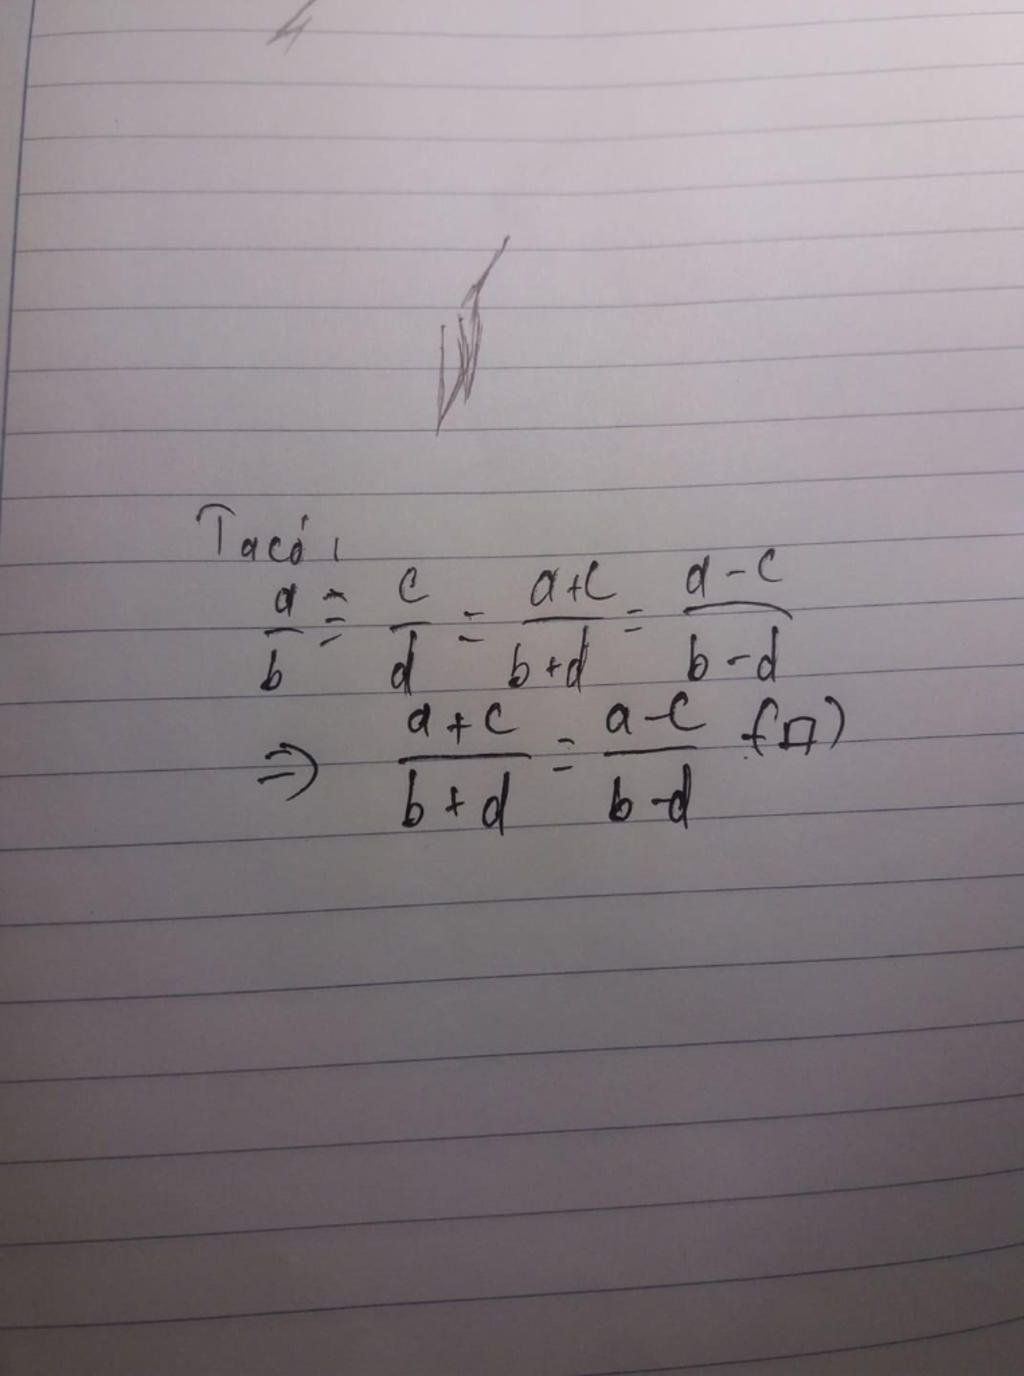 Ta có:
a/b = c/d = a+c/b+d = a-c/b-d
⇒ a+c/b+d = a-c/b-d